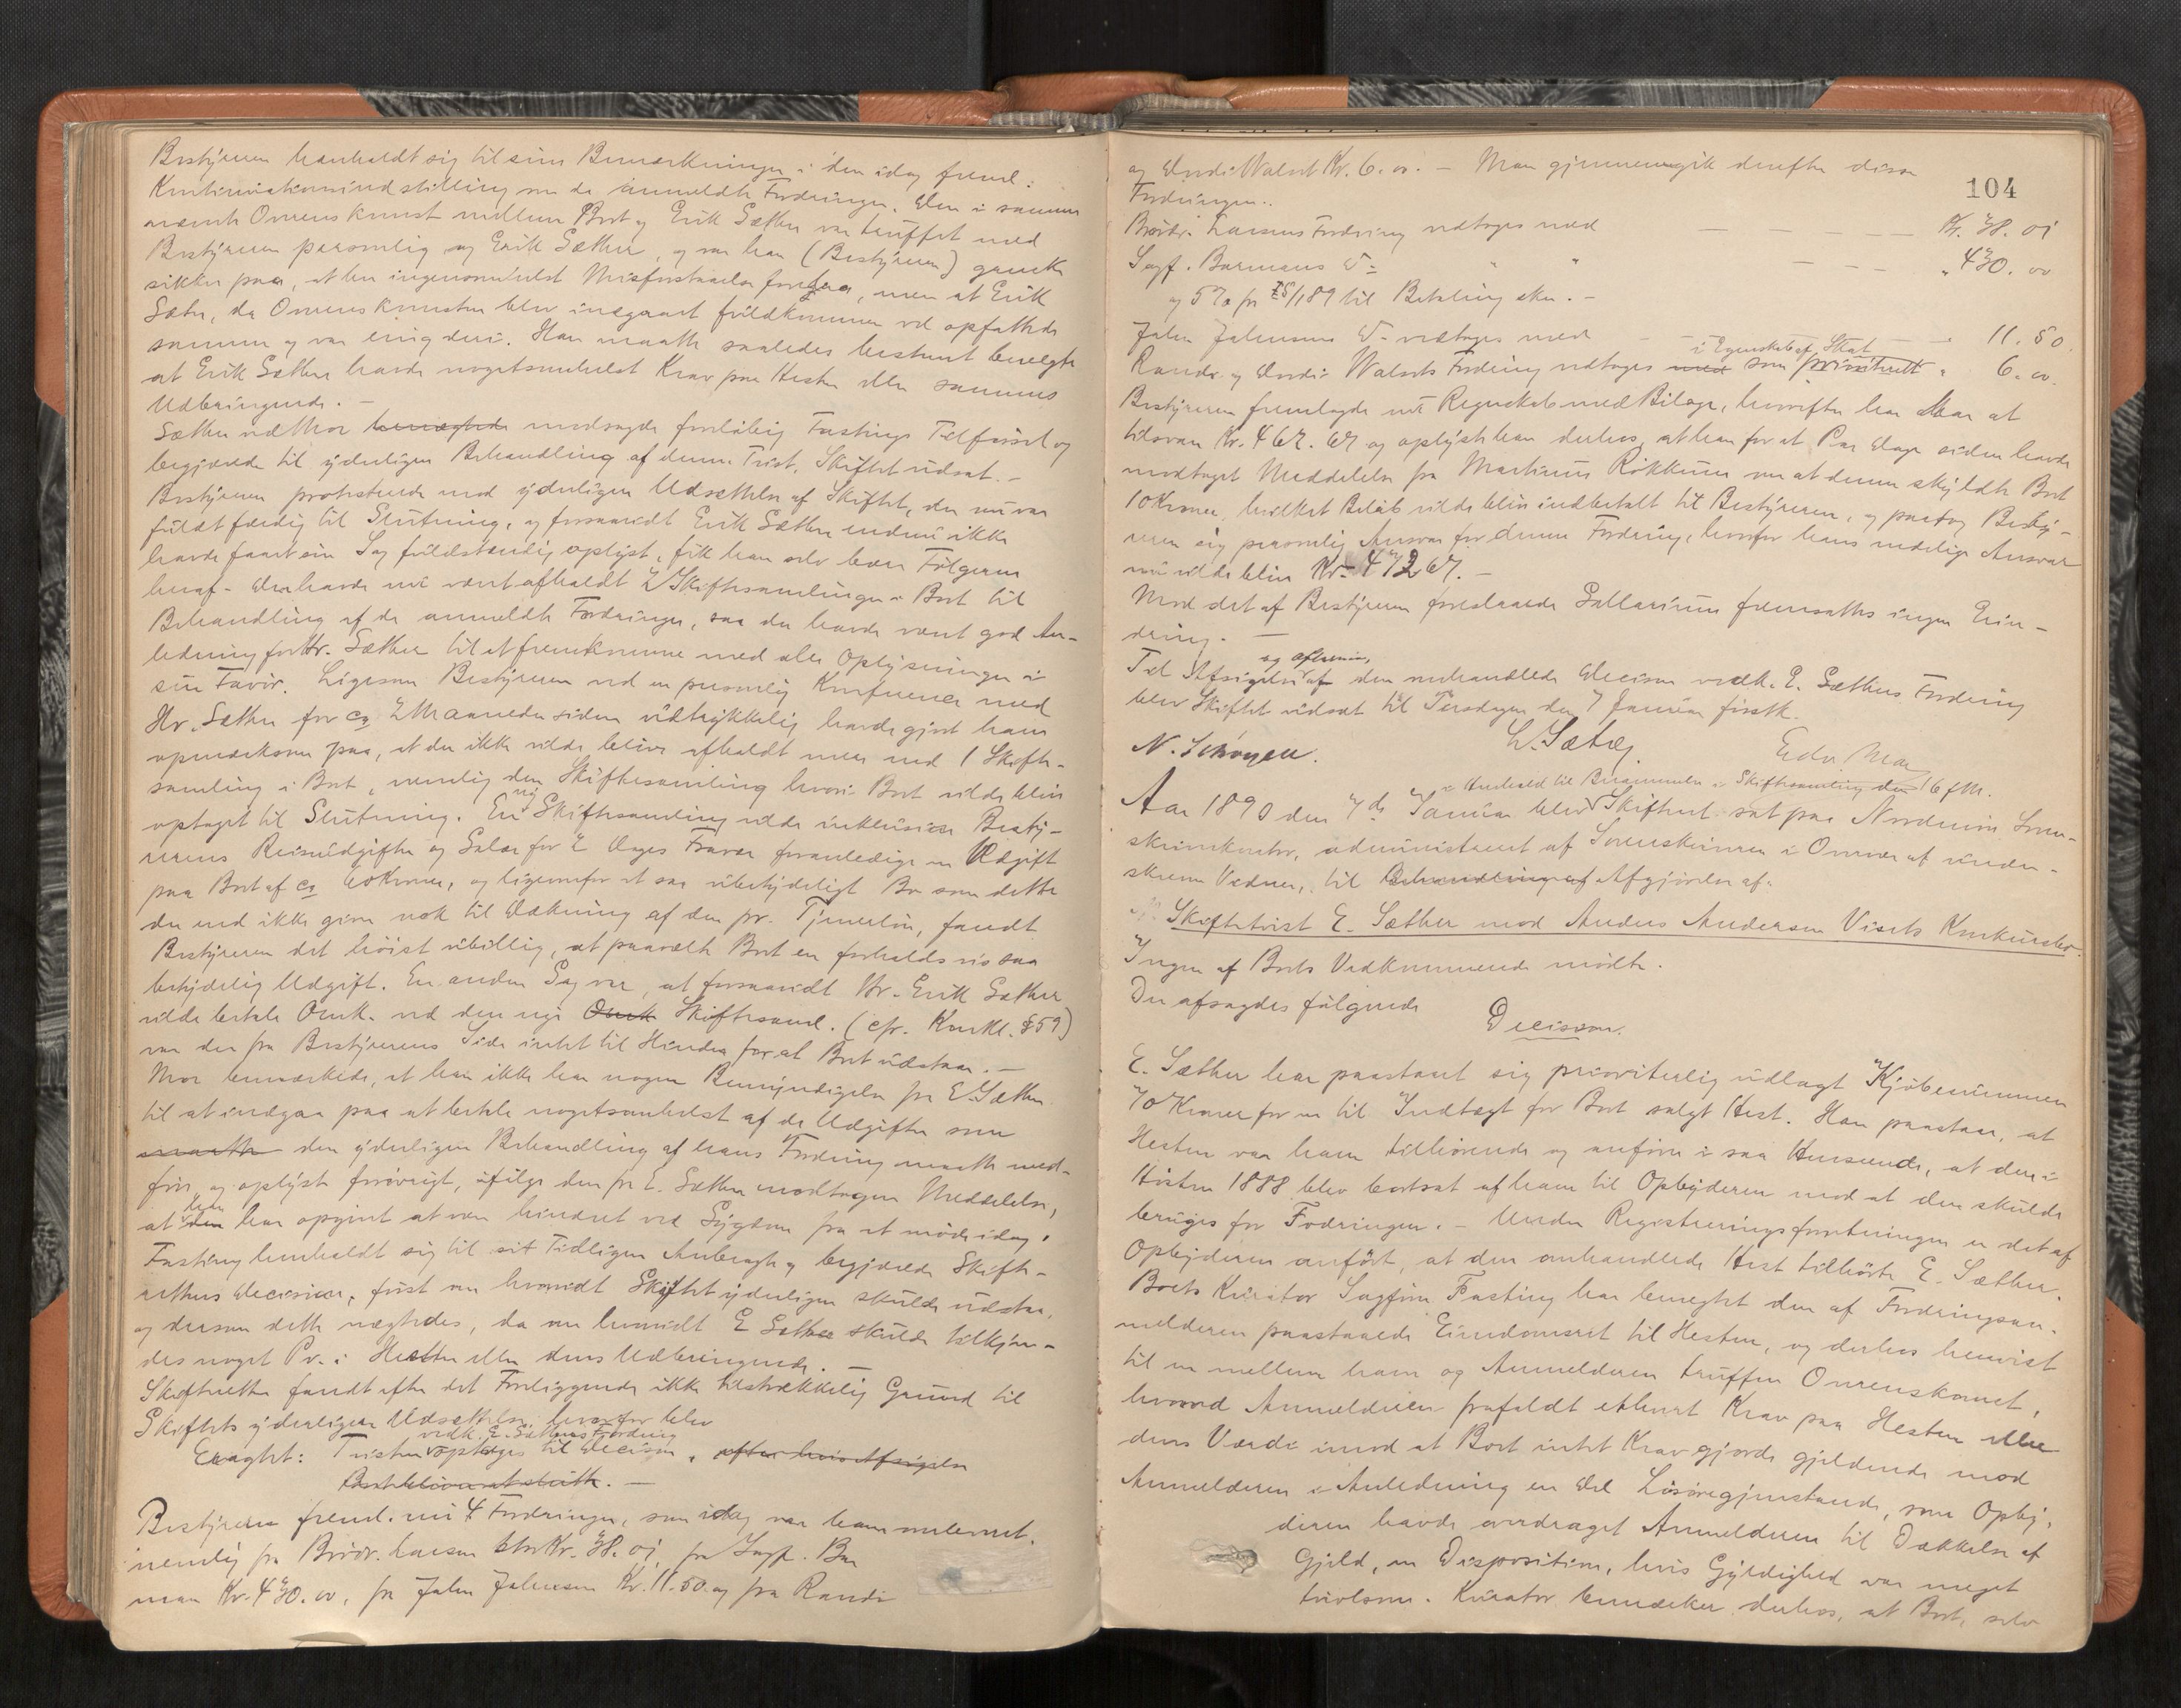 Bestyreren henholdt sig til sine Bemærkninger i den idag freml.
Kontinuationsindstilling om de anmeldte Fordringer. Den i samme
nævnte Overenskomst mellem Boet og Erik Sæther var truffet med
Bestyreren personlig og Erik Sæther, og var han (Bestyreren) ganske
sikker paa, at her ingensomhelst Misforstaaelse foreligger, men at Erik
Sæther, da Overenskomsten blev indgaaet fuldkommen vel opfattede
samme og var enig deri. Han maatte saaledes bestemt benægte
at Erik Sæther havde nogetsomhelst Krav paa Hesten eller sammes
Udbringende. –
Sæther ved Mor benægtede modsagde foreløbig Fastings Tilførsel og
begjærede til yderligere Behandling af denne Tvist, Skiftet udsat. –
Bestyreren protesterede mod yderligere Udsættelse af Skiftet, der nu var
fuldt færdig til Slutning, og forsaavidt Erik Sæther endnu ikke
havde faaet sin Sag fuldstændig oplyst, fik han selv bære Følgerne
heraf. Der havde nu været afholdt 2 Skiftesamlinger i Boet til
Behandling af de anmeldte Fordringer, saa der havde været god An-
ledning for Hr. Sæther til at fremkomme med alle Oplysninger i
sin Favør. Ligesom Bestyreren ved en personlig Konference med
Hr. Sæther for ca 2 Maaneder siden udtrykkelig havde gjort ham
opmærksom paa, at der ikke vilde blive afholdt mere end 1 Skifte-
samling i Boet, nemlig den Skiftesamling hvori Boet vilde blive
optaget til Slutning. En ny Skiftesamling vilde inklusive Besty-
rerens Reiseudgifter og Salær for 2 Dages Fravær foranledige en Udgift
paa Boet af ca 60 Kroner, og ligeoverfor et saa ubetydeligt Bo som dette
der end ikke giver nok til Dækning af den pr. Tjenerløn, fandt
Bestyreren det høist ubillig, at paavælte Boet en forholdsvis saa
betydelig Udgift. En anden Sag var, at forsaavidt Hr. Erik Sæther
vilde betale Omk. ved den nye Omk Skiftesaml. (cfr. Konkl. §59)
var der fra Bestyrerens Side intet til Hinder for at Boet udstaar. –
Mor bemærkede, at han ikke har nogen Bemyndigelse fra E. Sæther
til at indgaa paa at betale nogetsomhelst af de Udgifter som
maatte den yderligere Behandling af hans Fordring maatte med-
føre, og oplyste forøvrigt, ifølge den fra E. Sæther modtagne Meddelelse,
at denne har opgivet at være hindret ved Sygdom fra at møde idag.
Fasting henholdt sig til sit Tidligere Anbragte og begjærede Skifte-
rettens Decision, først om hvorvidt Skiftet yderligere skulde udstaa,
og dersom dette nægtedes, da om hvorvidt E Sæther skulde tilkjen-
des noget Pr. i Hesten eller dens Udbringende. –
Skifteretten fandt efter det Foreliggende ikke tilstrækkelig Grund til
Skiftets yderligere Udsættelse, hvorfor blev
vedk. E. Sæthers Fordring
Eragtet: Tvisten optages til Decision, efter hvis Afsigelse
Boet bliver at slutte. –
Bestyreren freml. nu 4 Fordringer, som idag var ham anleveret,
nemlig fra Brødr. Larsen Kr. 38.01, fra Sagf. Bar
man Kr. 430.00, fra John Johnsen Kr. 11.50 og fra Randi
104
og Endi Walset Kr. 6.00. – Man gjennemgik derefter disse
Fordringer.
Brødr. Larsens Fordring vedtoges med – – – – – Kr. 38.01
Sagf. Barmans D= " " – – – " 430.00
og 5% fra 25/1 89 til Betaling sker. –
John Johnsens D= vedtoges med – – – " 11.50
i Egenskab af Skat
Randi og Endi Walsets Fordring vedtoges med som prioriteret " 6.00
Bestyreren fremlagde nu Regnskab med Bilage, hvorefter han har at
tilsvare Kr. 467.67 og oplyste han derhos, at han for et Par Dage siden havde
modtaget Meddelelse fra Martinus Røkkum om at denne skyldte Boet
10 Kroner, hvilket Beløb vilde blive indbetalt til Bestyreren, og paatog Besty-
reren sig personlig Ansvar for denne Fordring, hvorfor hans endelige Ansvar
nu vilde blive Kr. 472 67. –
Mod det af Bestyreren foreslaaede Sallarium fremsattes ingen Erin-
dring. –
Til Afsigelse af den omhandlede Decision vedk. E. Sæthers Fordring
blev Skiftet udsat til Tirsdagen den 7 Januar førstk.
N. Schøyen. L. Sæther Edv. Mor
i Henhold til Berammelse i Skiftesamling den 16 f.M.
Aar 1890 den 7de Januar blev Skifteret sat paa Nordmøre Soren-
skriverkontor, administreret af Sorenskriveren i Overvær af under-
skrevne Vidner, til Behandling af Afgjørelse af:
Skiftetvist E. Sæther mod Anders Andersen Visets Konkursbo.
Ingen af Boets Vedkommende mødte.
Der afsagdes følgende
Decision.
E. Sæther har paastaaet sig prioriterlig udlagt Kjøbesummen
70 Kroner for en til Indtægt for Boet solgt Hest. Han paastaar, at
Hesten var ham tilhørende og anfører i saa Henseende, at den i
Høsten 1888 blev bortsat af ham til Opbyderen mod at den skulde
bruges for Fodringen. – Under Registreringsforretningen er det af
Opbyderen anført, at den omhandlede Hest tilhørte E. Sæther.
Boets Kurator Sagfører Fasting har benegtet den af Fordringsan-
melderen paastaaede Eiendomsret til Hesten, og derhos henvist
til en mellem ham og Anmelderen truffen Overenskomst,
hvorved Anmelderen frafaldt ethvert Krav paa Hesten eller
dens Værdi imod at Boet intet Krav gjorde gjeldende mod
Anmelderen i Anledning en Del Løsøregjenstande, som Opby-
deren havde overdraget Anmelderen til Dækkelse af
Gjeld, en Disposition, hvis Gyldighed var meget
tvivlsom. Kurator bemærker derhos, at Boet, selv